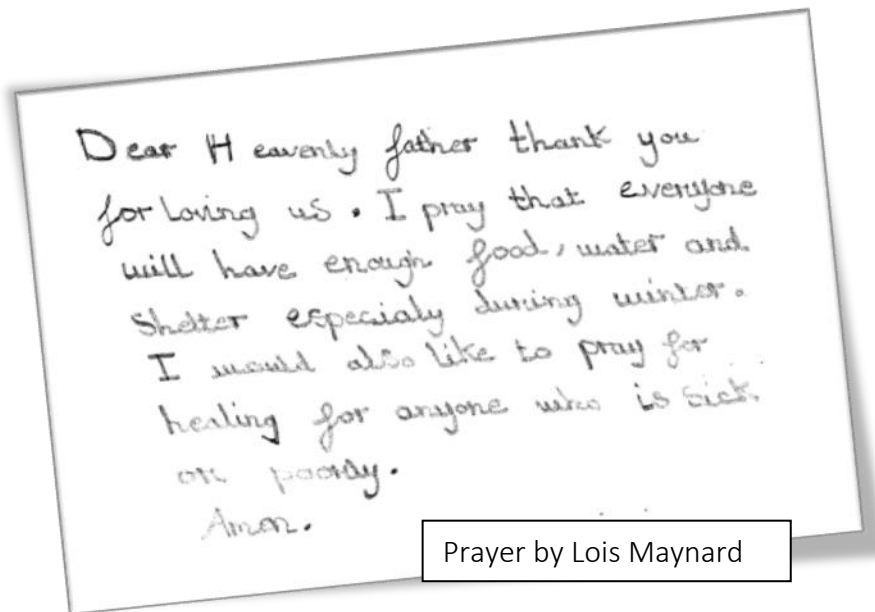 Dear Heavenly father thank you
for Loving us. I pray that everyone
will have enough food, water and
Shelter especialy during winter.
I would also like to pray for
healing for anyone who is sick
or poorly.
Amen.
Prayer by Lois Maynard